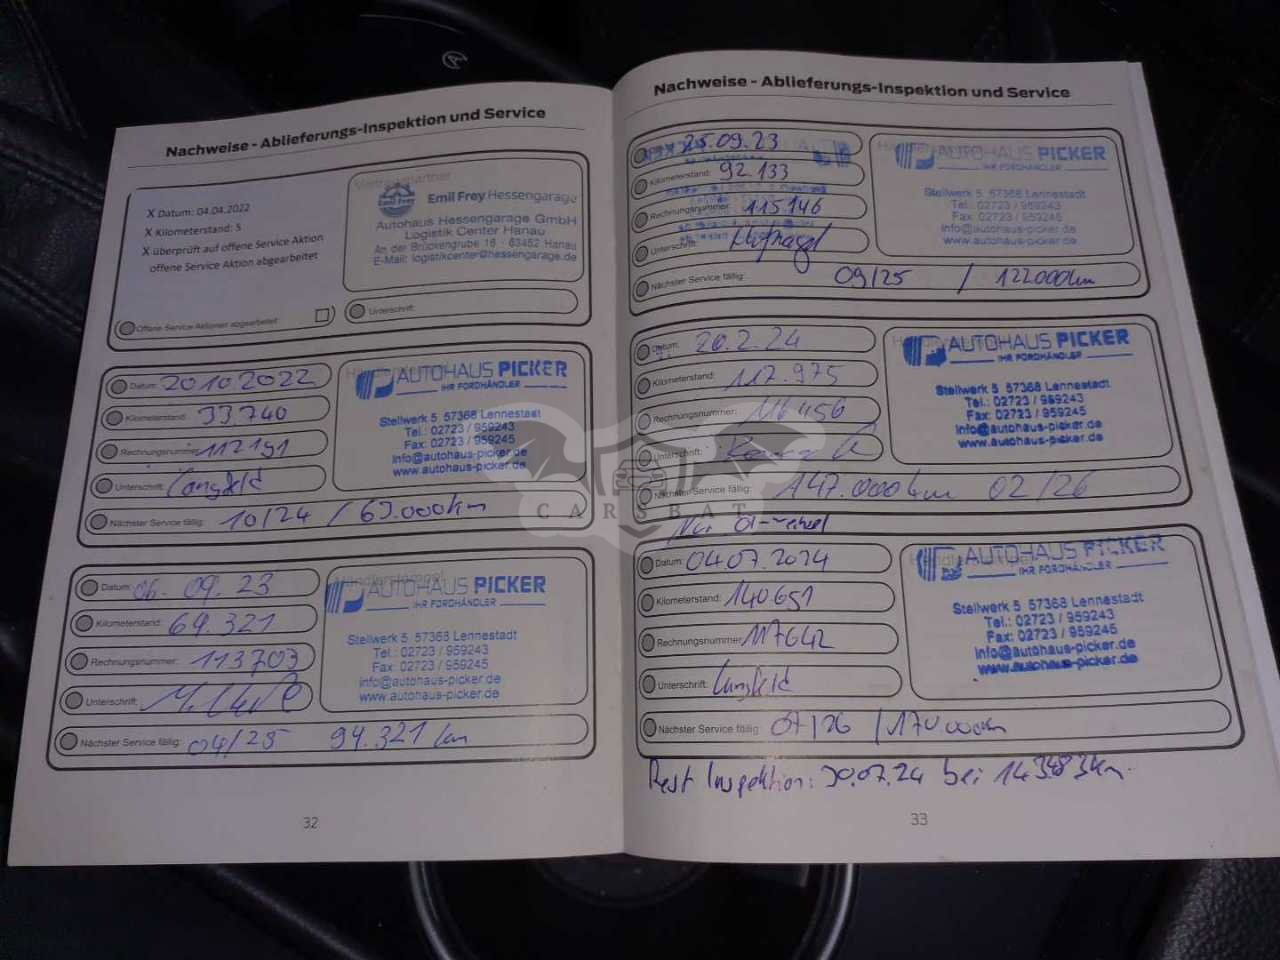 Nachweise - Ablieferungs-Inspektion und Service
X Datum: 04.04.2022
X Kilometerstand: 5
X überprüft auf offene Service Aktion
offene Service Aktion abgearbeitet
Offene Service Aktionen abgearbeitet
Emil Frey
Emil Frey Hessengarage
Autohaus Hessengarage GmbH
Logistik Center Hanau
An der Brückengrube 16 - 63452 Hanau
E-Mail: logistikcenter@hessengarage.de
Unterschrift:
Datum: 20.10.2022
Kilometerstand: 33.740
Rechnungsnummer: 112191
Unterschrift: Langfeld
Nächster Service fällig: 10/24 / 63.000km
AUTOHAUS PICKER
IHR FORDHÄNDLER
Stellwerk 5 57368 Lennestadt
Tel.: 02723 / 959243
Fax: 02723 / 959245
info@autohaus-picker.de
www.autohaus-picker.de
Datum: 06.09.23
Kilometerstand: 64.321
Rechnungsnummer: 113703
Unterschrift:
Nächster Service fällig: 04/25 94.321 km
Händlerstempel
AUTOHAUS PICKER
IHR FORDHÄNDLER
Stellwerk 5 57368 Lennestadt
Tel.: 02723 / 959243
Fax: 02723 / 959245
info@autohaus-picker.de
www.autohaus-picker.de
32
Nachweise - Ablieferungs-Inspektion und Service
25.09.23
Kilometerstand: 92.133
Rechnungsnummer: 115146
Unterschrift:
Nächster Service fällig: 09/25 / 122000km
AUTOHAUS PICKER
IHR FORDHÄNDLER
Stellwerk 5 57368 Lennestadt
Tel.: 02723 / 959243
Fax: 02723 / 959245
info@autohaus-picker.de
www.autohaus-picker.de
Datum: 20.2.24
Kilometerstand: 117.975
Rechnungsnummer: 116456
Unterschrift:
Nächster Service fällig: 147.000km 02/26
AUTOHAUS PICKER
IHR FORDHÄNDLER
Stellwerk 5 57368 Lennestadt
Tel.: 02723 / 959243
Fax: 02723 / 959245
info@autohaus-picker.de
www.autohaus-picker.de
CARSBAT
Nur Öl-wechsel
Datum: 04.07.2024
Kilometerstand: 140651
Rechnungsnummer: 117642
Unterschrift: Langfeld
Nächster Service fällig: 07/26 / 170.000km
AUTOHAUS PICKER
IHR FORDHÄNDLER
Stellwerk 5 57368 Lennestadt
Tel.: 02723 / 959243
Fax: 02723 / 959245
info@autohaus-picker.de
www.autohaus-picker.de
Rest Inspektion: 30.07.24 bei 143483km.
33